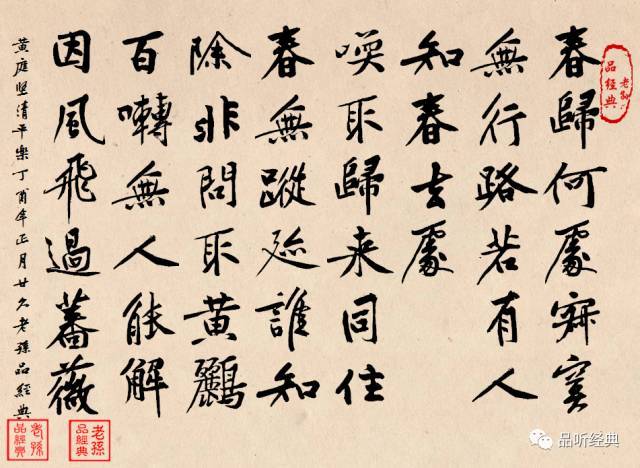 春歸何處寂寞
無行路若有人
知春去處
喚取歸来同住
春無蹤迹誰知
除非問取黄鸝
百囀無人能解
因風飛過薔薇
黄庭堅清平樂丁酉年正月廿老孫品經典
老孫品經典
老孫品經典
老孫品經典
品听经典